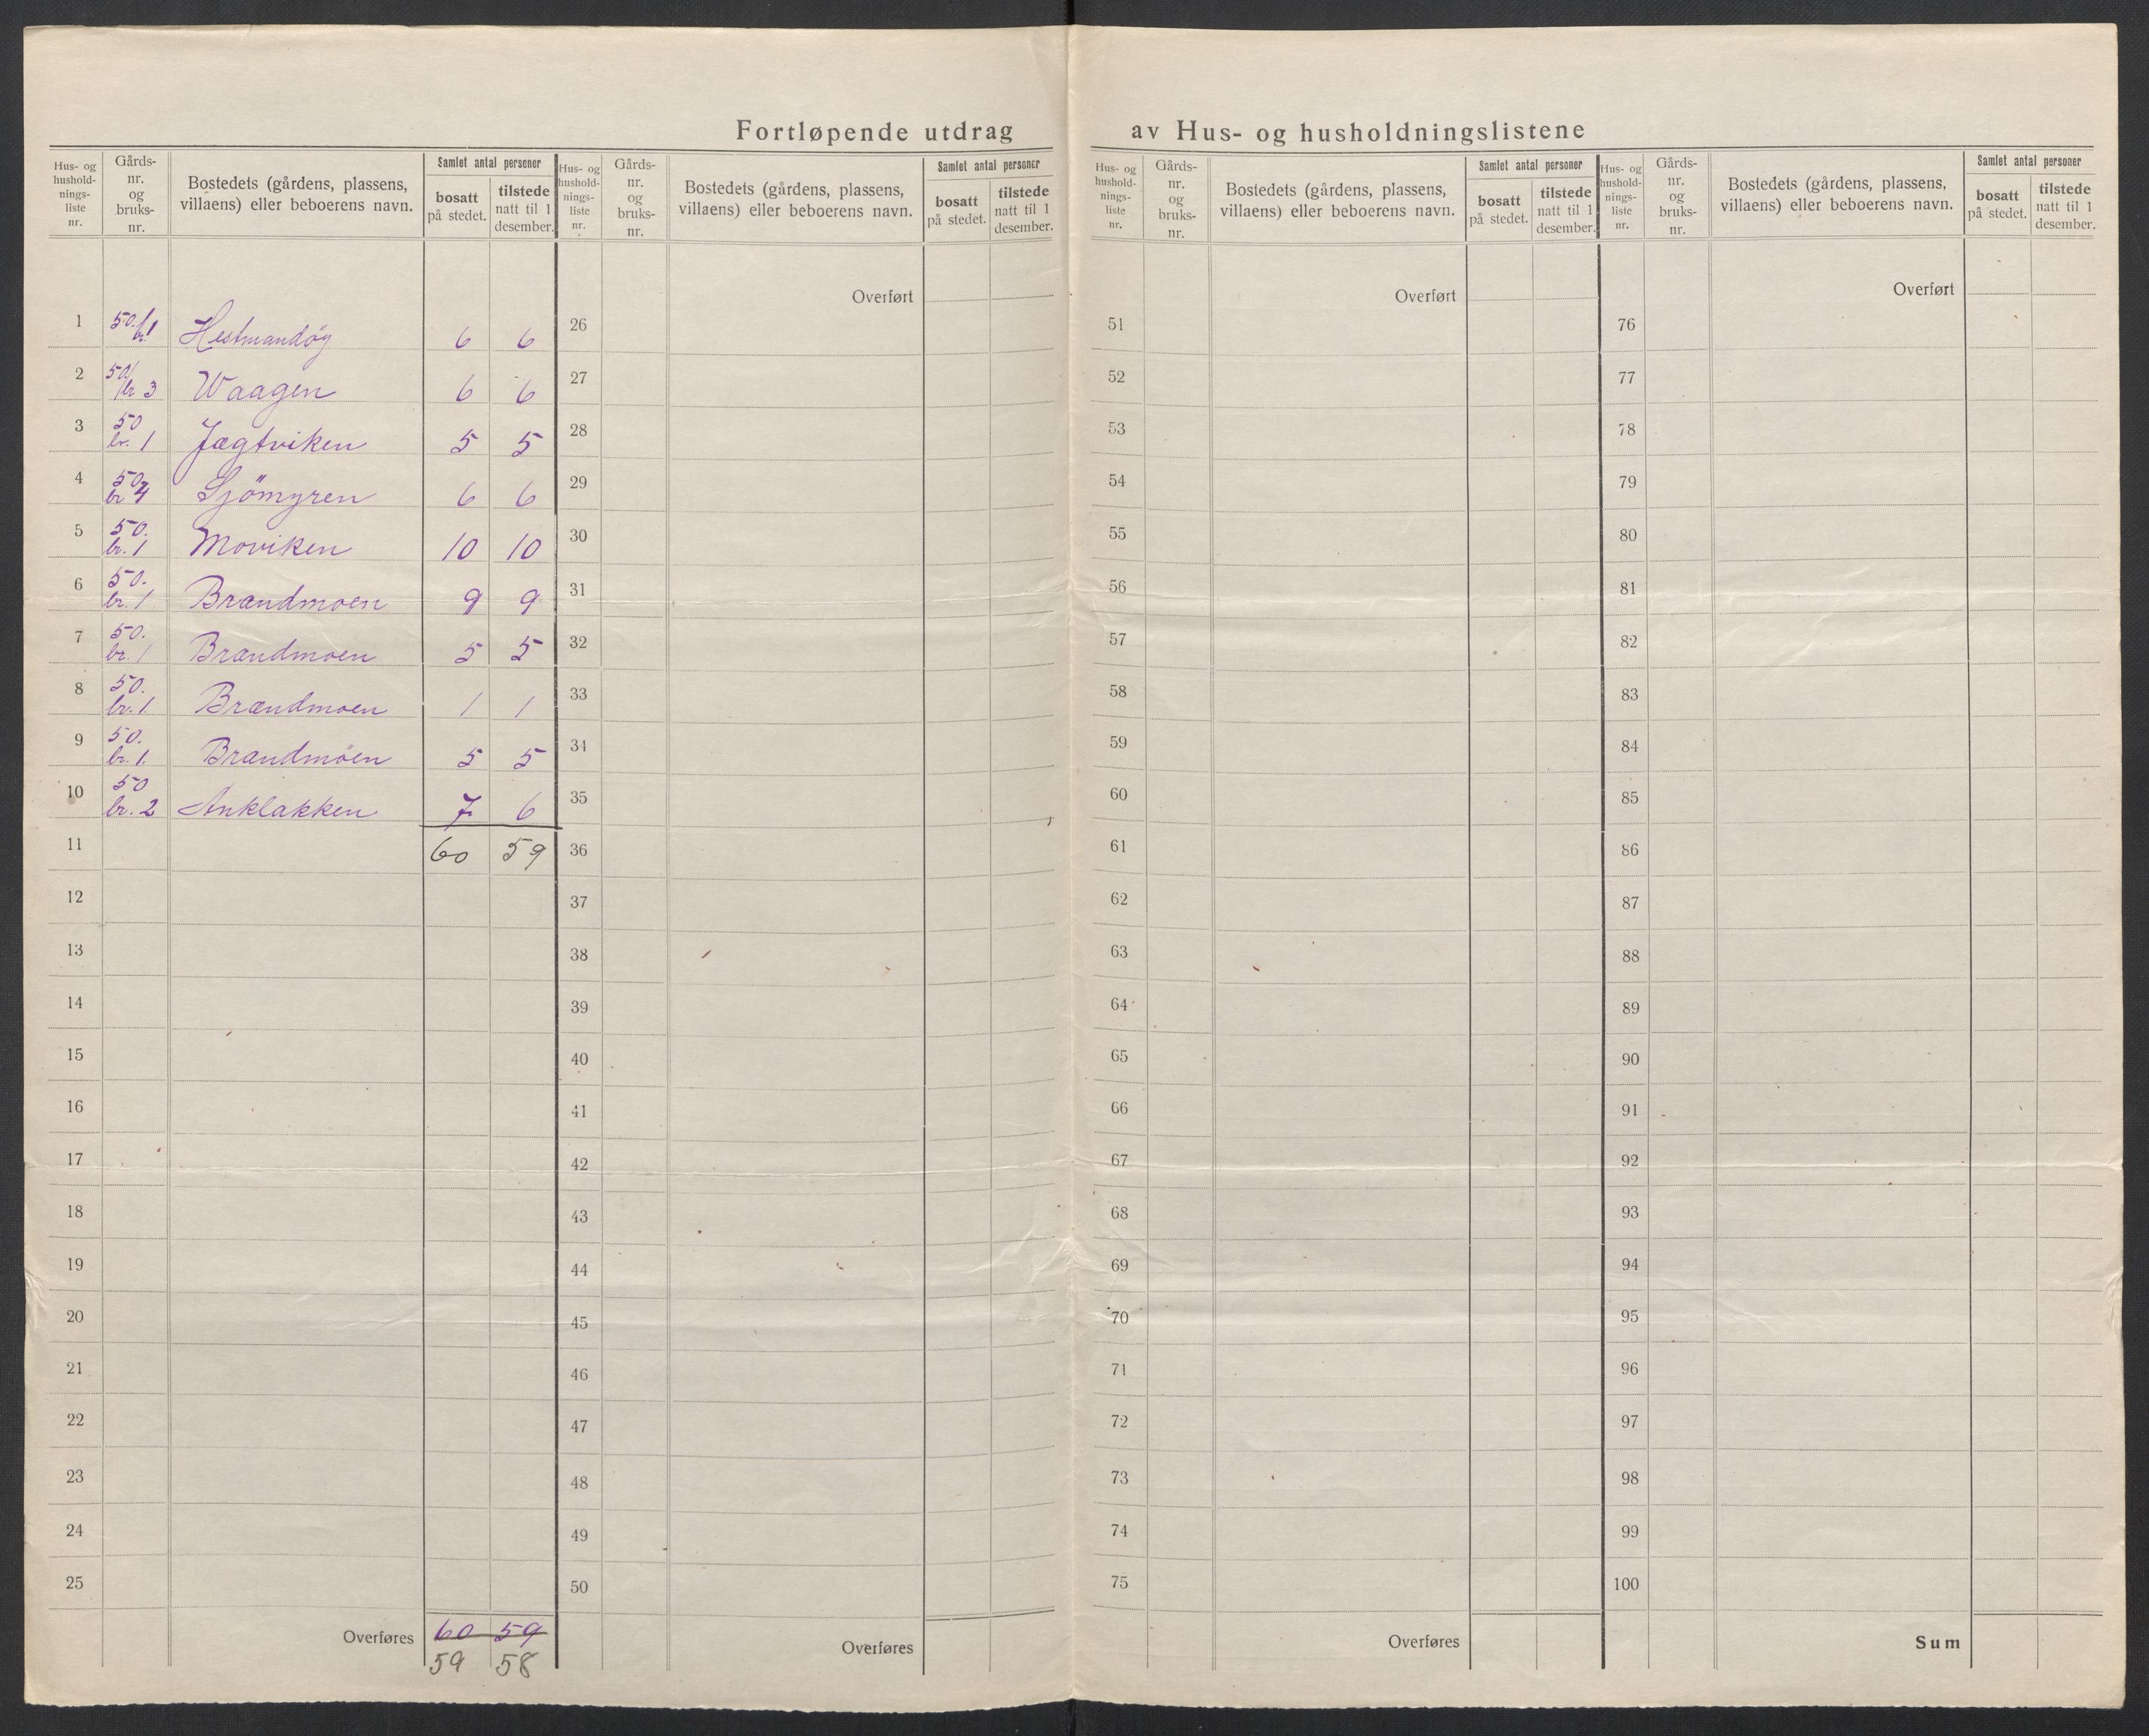 Fortløpende utdrag av Hus- og husholdningslistene
Hus- og hushold-nings-liste nr. Gårds-nr. og bruks-nr. Bostedets (gårdens, plassens, villaens) eller beboerens navn. Samlet antal personer bosatt på stedet. tilstede natt til 1 desember.
1 50. br 1 Hestmandöy 6 6
2 50/ br 3 Waagen 6 6
3 50 br. 1 Jægtviken 5 5
4 50 br 4 Sjömyren 6 6
5 50. br. 1 Moviken 10 10
6 50. br. 1 Brændmoen 9 9
7 50. br. 1 Brændmoen 5 5
8 50. br. 1 Brændmoen 1 1
9 50. br. 1. Brændmoen 5 5
10 50 br. 2 Anklakken 7 6
11 60 59
12
13
14
15
16
17
18
19
20
21
22
23
24
25
Overføres 60 59
59 58
Hus- og hushold-nings-liste nr. Gårds-nr. og bruks-nr. Bostedets (gårdens, plassens, villaens) eller beboerens navn. Samlet antal personer bosatt på stedet. tilstede natt til 1 desember.
Overført
26
27
28
29
30
31
32
33
34
35
36
37
38
39
40
41
42
43
44
45
46
47
48
49
50
Overføres
Hus- og hushold-nings-liste nr. Gårds-nr. og bruks-nr. Bostedets (gårdens, plassens, villaens) eller beboerens navn. Samlet antal personer bosatt på stedet. tilstede natt til 1 desember.
Overført
51
52
53
54
55
56
57
58
59
60
61
62
63
64
65
66
67
68
69
70
71
72
73
74
75
Overføres
Hus- og hushold-nings-liste nr. Gårds-nr. og bruks-nr. Bostedets (gårdens, plassens, villaens) eller beboerens navn. Samlet antal personer bosatt på stedet. tilstede natt til 1 desember.
Overført
76
77
78
79
80
81
82
83
84
85
86
87
88
89
90
91
92
93
94
95
96
97
98
99
100
Sum